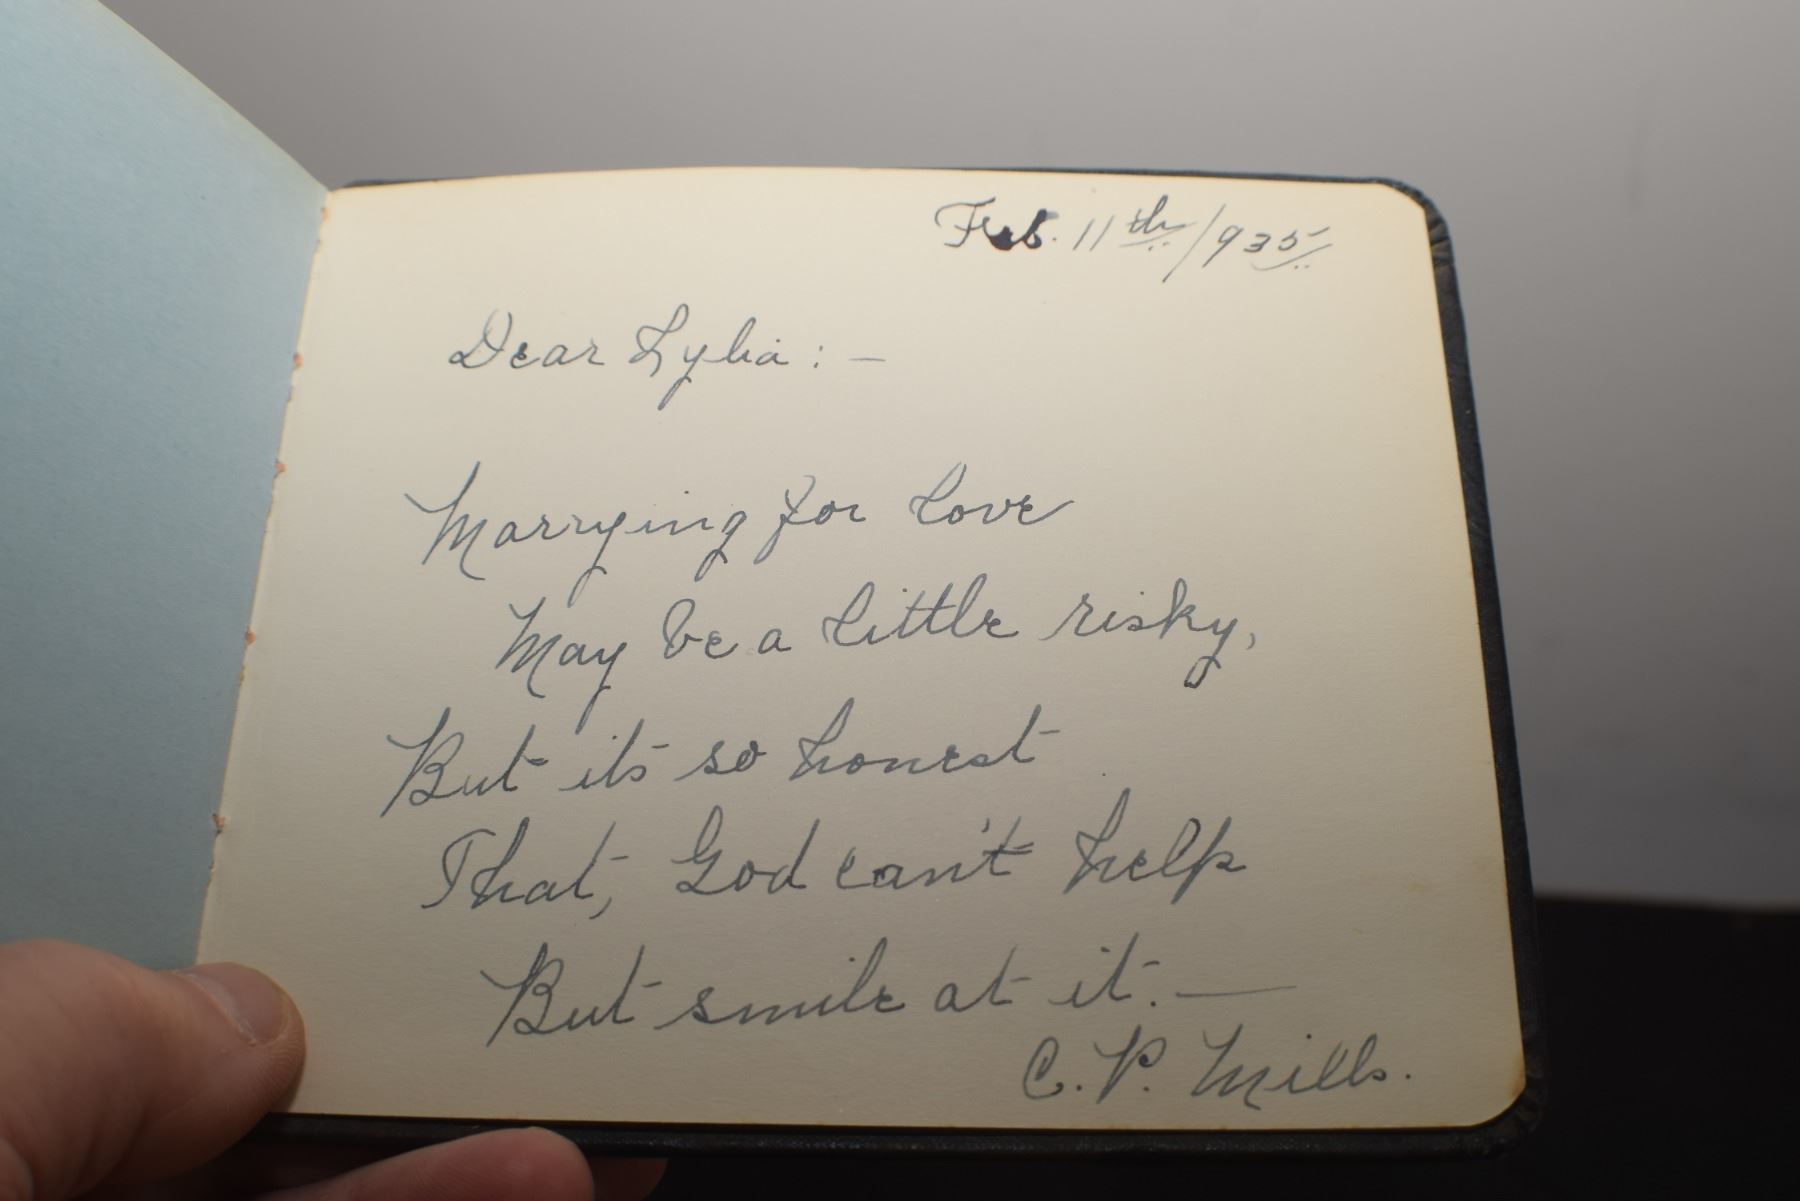 Feb. 11th/935
Dear Lylia : —
Marrying for love
May be a little risky,
But its so honest
That, God can't help
But smile at it. —
C. P. Mills.